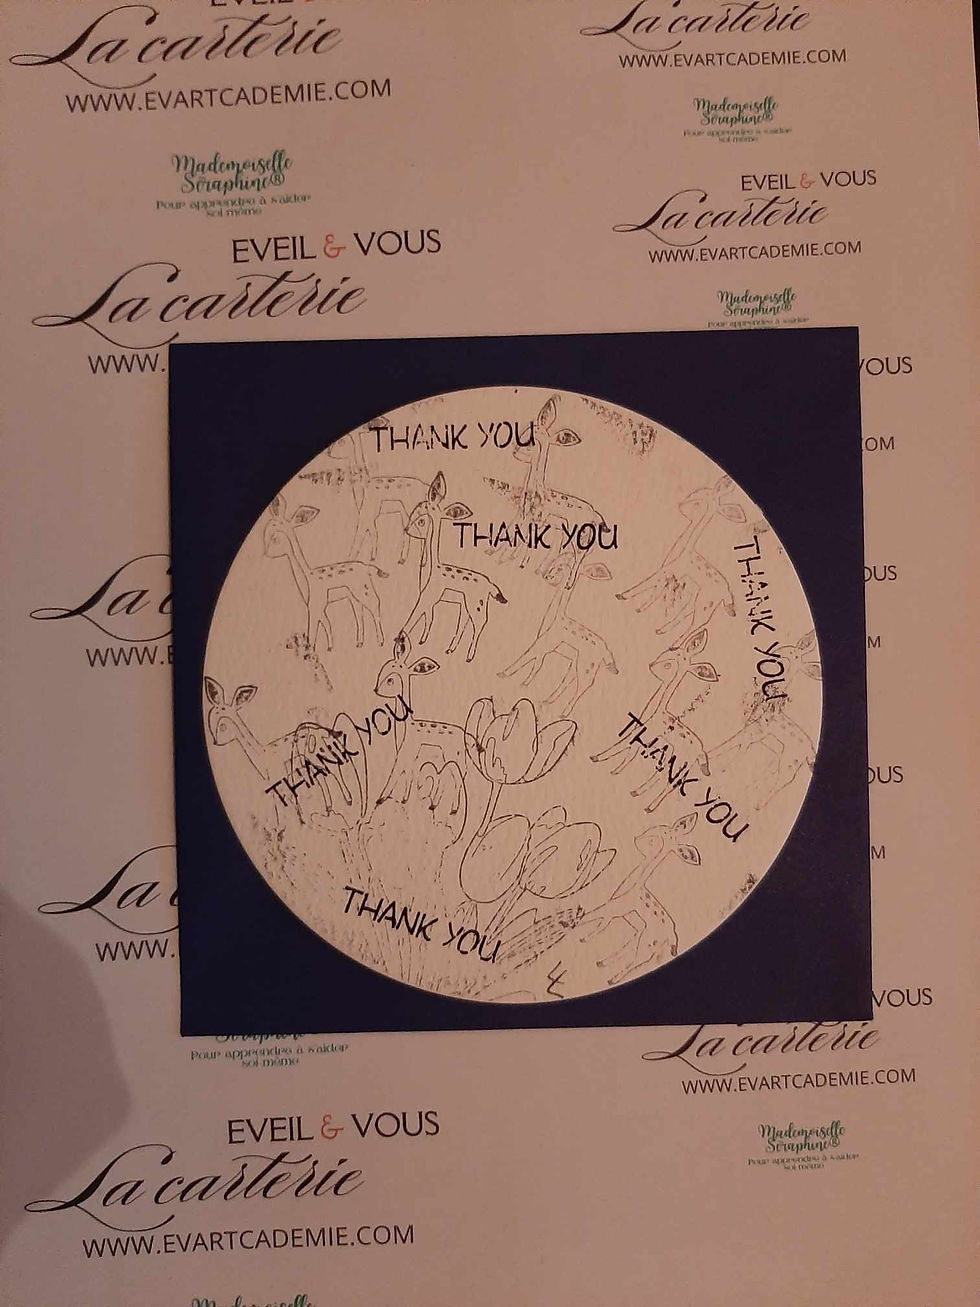 EVEIL
La carterie
La carterie
WWW.EVARTCADEMIE.COM
WWW.EVARTCADEMIE.COM
Mademoiselle
Séraphine®
Pour apprendre à s'aider
soi-même
Mademoiselle
Séraphine®
Pour apprendre à s'aider
soi-même
EVEIL & VOUS
La carterie
WWW.EVARTCADEMIE.COM
EVEIL & VOUS
La carterie
WWW.
Mademoiselle
Séraphine®
Pour apprendre à s'aider
VOUS
OM
THANK YOU
THANK YOU
THANK YOU
OUS
La c
WWW.E
M
THANK YOU
THANK YOU
OUS
La c
WWW.
M
THANK YOU
VOUS
Séraphine®
Pour apprendre à s'aider
soi-même
La carterie
WWW.EVARTCADEMIE.COM
EVEIL & VOUS
La carterie
WWW.EVARTCADEMIE.COM
Mademoiselle
Séraphine®
Pour apprendre à s'aider
soi-même
Mademoiselle